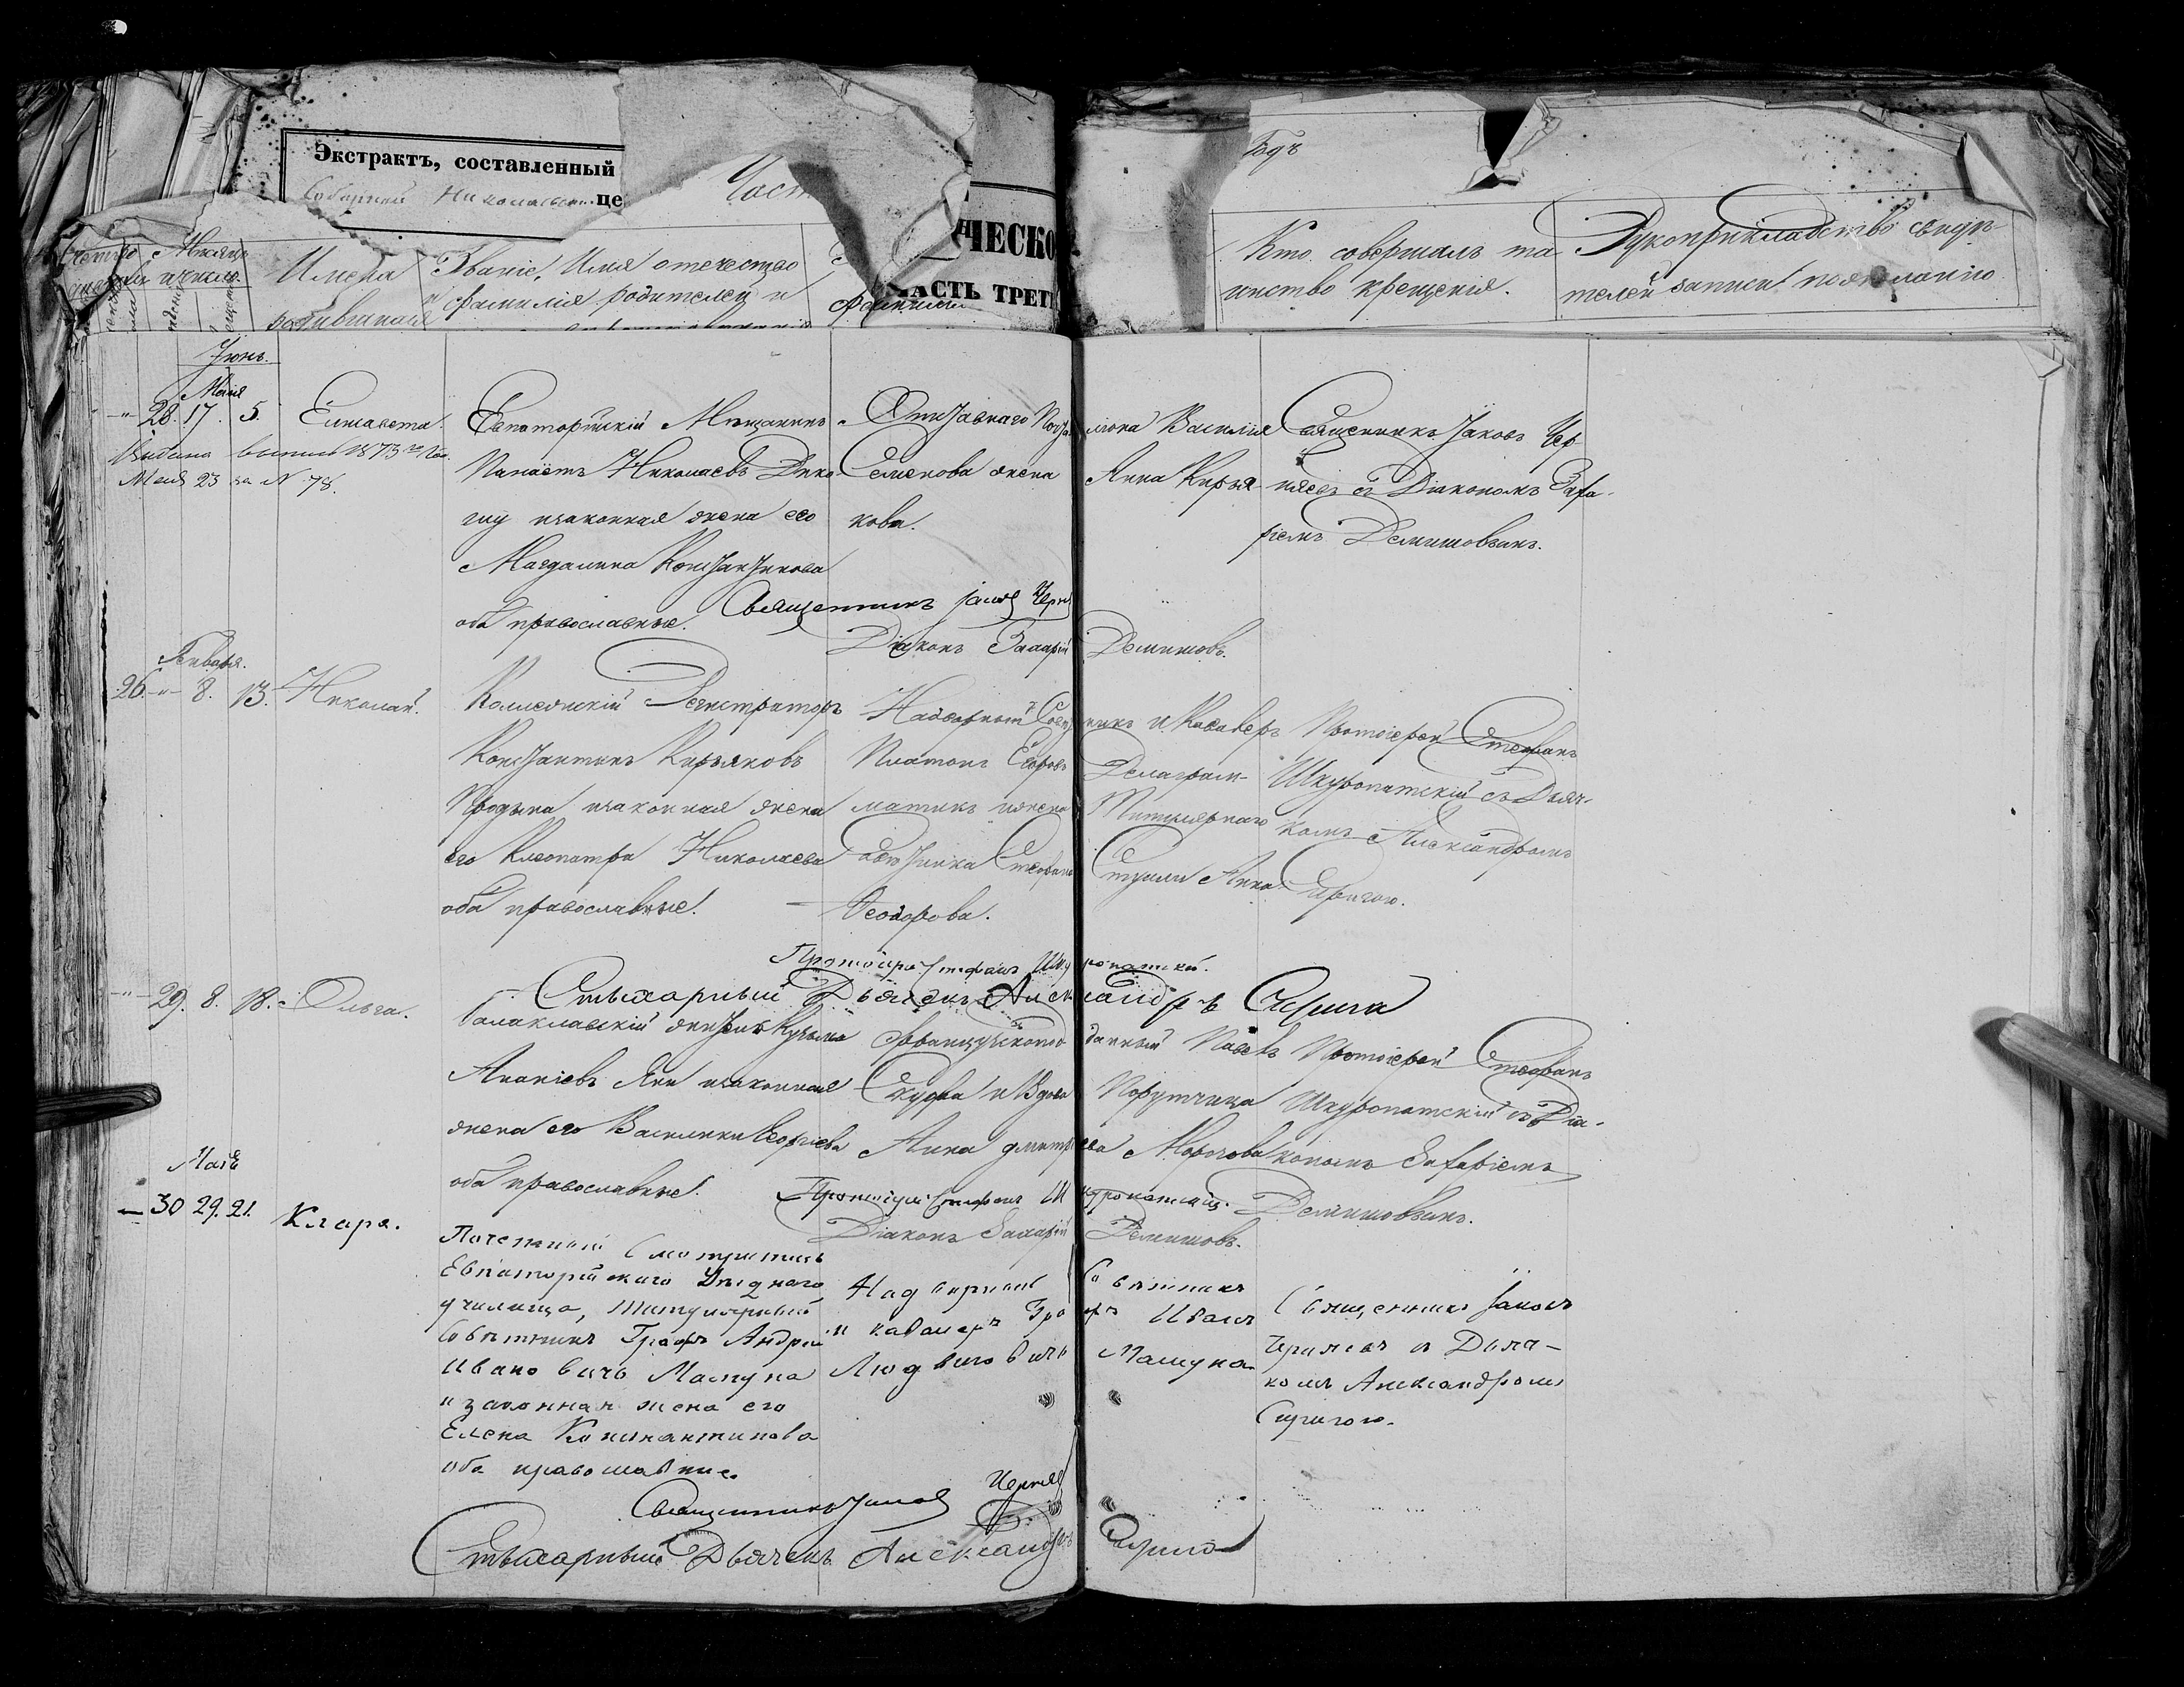 Экстрактъ, составленный
Соборной Николаевс.. це
Част
ЧЕСКО
АСТЬ ТРЕТ
Имена
Званіе, Имя отечество
фамилія родителей и
Кто совершалъ та
инство крещенія.
Рукоприкладство свидѣ
телей записи по желанію
Іюнь.
Маія
28. 17. 5. Елисавета.
Евпаторійскій Мѣщанинъ
Николаевъ
и законная жена его
Магдалина Константинова
оба православные.
Отставнаго
Василія
Семенова жена Анна Кирья
кова.
Священникъ Іаковъ Чер
няевъ съ Діакономъ Заха-
ріемъ Демишовымъ.
Выдана выпись 1873 го
Маія 23 за N 78.
Священникъ Іаковъ Черня
Діаконъ Захарій Демишовъ.
Января.
26. 8. 13. Николай.
Коллежскій Регистраторъ
Константинъ Кирьяковъ
законная жена
его Клеопатра Николаева
оба православные.
Надворный Совѣтникъ и Кавалеръ
Платонъ Егоровъ Делаграм-
матикъ и жена Титулярнаго
Стефана Анна
Ѳеодорова.
Протоіерей Стефанъ
Шкуропатскій съ Дьяч-
комъ Александромъ
Сиригою.
Протоіерей Стефанъ Шкуропатскій.
Стихарный Дьячекъ Александръ Сирига
29. 8. 18. Ольга.
Балаклавскій житель Кузьма
Ананіевъ Яни и законная
жена его Василики Георгіева
оба православные.
Французскоподданный Павелъ
и Вдова Порутчица
Анна Дмитріева Морозова
Протоіерей Стефанъ
Шкуропатскій съ Діа-
кономъ Захаріемъ
Демишовымъ.
Протоіерей Стефанъ Шкуропатскій.
Діаконъ Захарій Демишовъ.
Маія
30 29. 21. Клара.
Почетный Смотритель
Евпаторійскаго Уѣзднаго
училища, Титулярный
Совѣтникъ Графъ Андрей
Ивановичъ Мамуна
и законная жена его
Елена Константинова
оба православные.
Надворный Совѣтникъ
и кавалеръ Графъ Иванъ
Людвиговичъ Мамуна.
Священникъ Іаковъ
Черняевъ съ Дьяч-
комъ Александромъ
Сиригою.
Священникъ Іаковъ Черняев
Стихарный Дьячекъ Александръ Сирига